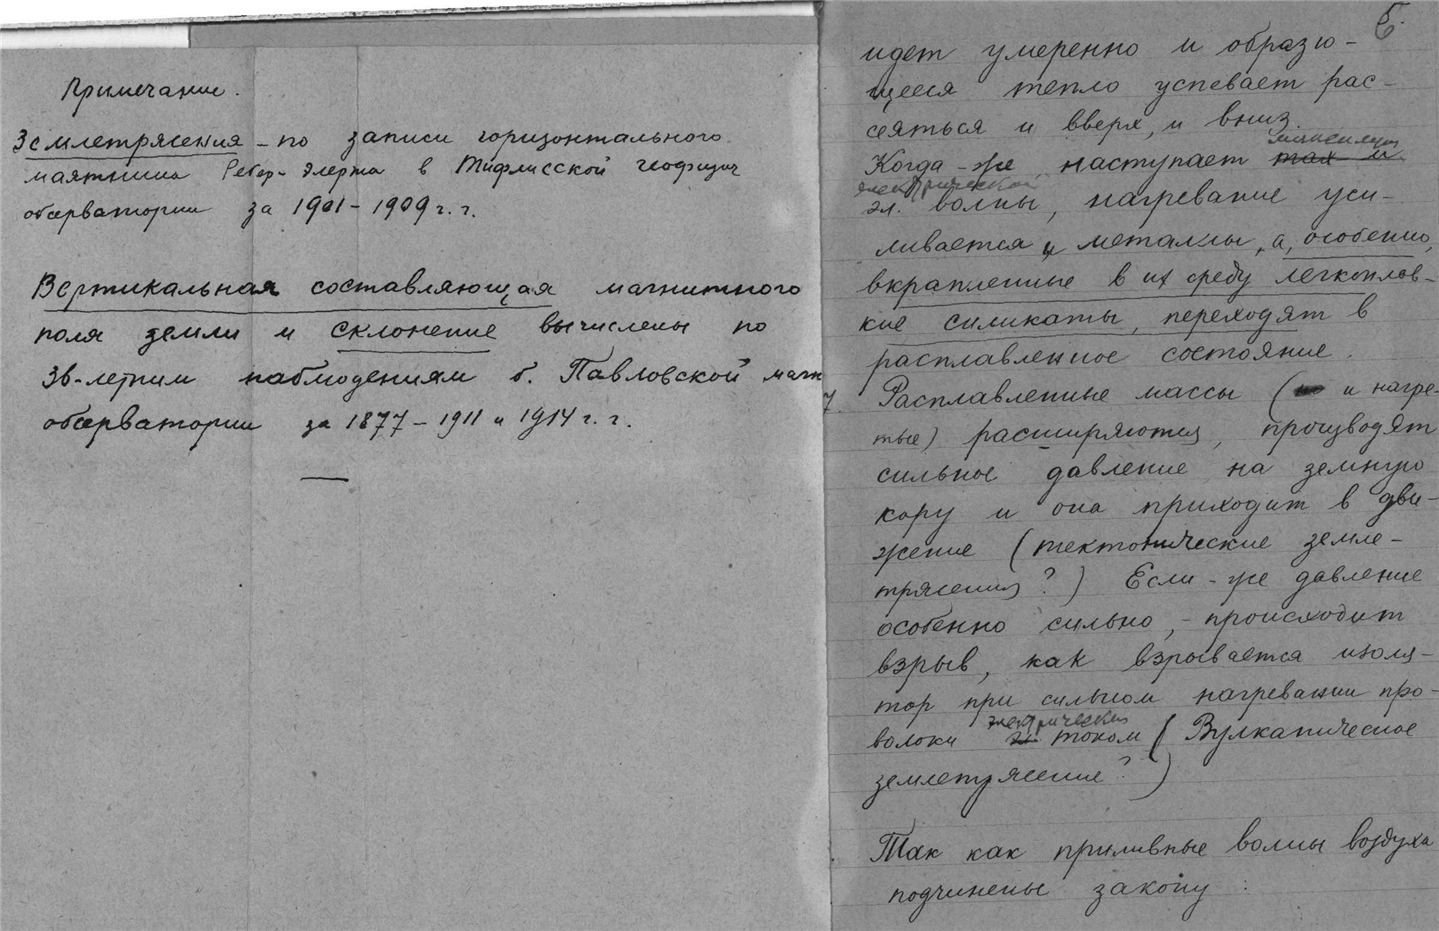 Примечание.
Землетрясения - по записи горизонтального
маятника Ребер-Элерта в Тифлисской геофизич
обсерватории за 1901-1909 г.г.
Вертикальная составляющая магнитного
поля земли и склонение вычислены по
36-летним наблюдениям б. Павловской магн
обсерватории за 1877-1911 и 1914 г.г.
5.
идет умеренно и образую-
щееся тепло успевает рас-
сеяться и вверх, и вниз.
максимум
Когда-же наступает мах и
электрической
эл. волны, нагревание уси-
ливается и металлы, а, особенно,
вкрапленные в их среду легкоплав-
кие силикаты, переходят в
расплавленное состояние.
7. Расплавленные массы ( и нагре-
тые) расширяются, производят
сильное давление на земную
кору и она приходит в дви-
жение (тектонические земле-
трясения?) Если-же давление
особенно сильно, - происходит
взрыв, как взрывается изоля-
тор при сильном нагревании про-
электрическим
волоки эл током (Вулканическое
землетрясение?)
Так как приливные волны воздуха
подчинены закону: